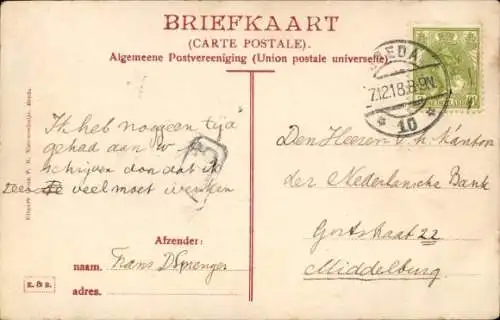 BRIEFKAART
(CARTE POSTALE).
Algemeene Postvereeniging (Union postale universelle).
BREDA
7.12.18.8-9N
10
Ik heb nog geen tijd
gehad aan u te
schrijven don dat ik
zeer veel moet werken
Den Heeren v. h. Kantoor
der Nederlansche Bank
Gortstraat 22
Middelburg.
Afzender:
naam. Frans D Sprenger
adres.
z. & z.